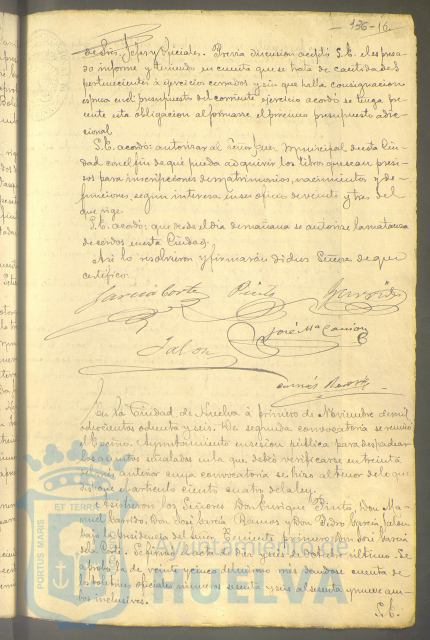 136-16
de Srs, Jefes y Oficiales. Previa discusion aceptó S.E. el expresa-
do informe y teniendo en cuenta que se trata de cantidades
pertenecientes á ejercicios cerrados y sin que halla consignacion
espresa en el presupuesto del corriente ejercicio acordó se tenga pre-
sente esta obligacion al formarse el proximo presupuesto adic-
cional.
S.E. acordó: autorizar al Señor Juez Municipal de esta Ciu-
dad con el fin de que pueda adquirir los libros que sean preci-
sos para inscripciones de matrimonios, nacimientos y de-
funciones, segun interesa en su oficio de veinte y tres del
que rige.
S.E. acordó: que desde el dia de mañana se autorice la matanza
de cerdos en esta Ciudad.
Asi lo resolvieron y firmarán dichos Señores de que
certifico.
Garcia Corte Pinto Garrido
José Mª
Jalon
En la Ciudad de Huelva á primero de Noviembre de mil
ochocientos ochenta y seis. De segunda convocatoria se reunió
el Excmo. Ayuntamiento en sesion pública para despachar
los asuntos señalados en la que debió verificarse en treinta
del mes anterior cuya convocatoria se hizo al tenor de lo que
dispone el articulo ciento cuatro de la ley.
Asistieron los Señores Don Enrique Pinto, Don Ma-
nuel Garrido, Don José Garcia Ramos y Don Pedro Garcia Jalon
bajo la Presidencia del Señor Teniente Primero Don José Garcia
de veinte y cinco de Octubre último. Se
dándose cuenta de
los boletines oficiales números sesenta y seis al setenta y nueve am-
bos inclusives.
S.E.
PORTUS MARIS ET TERRÆ
Ayuntamiento de
HUELVA